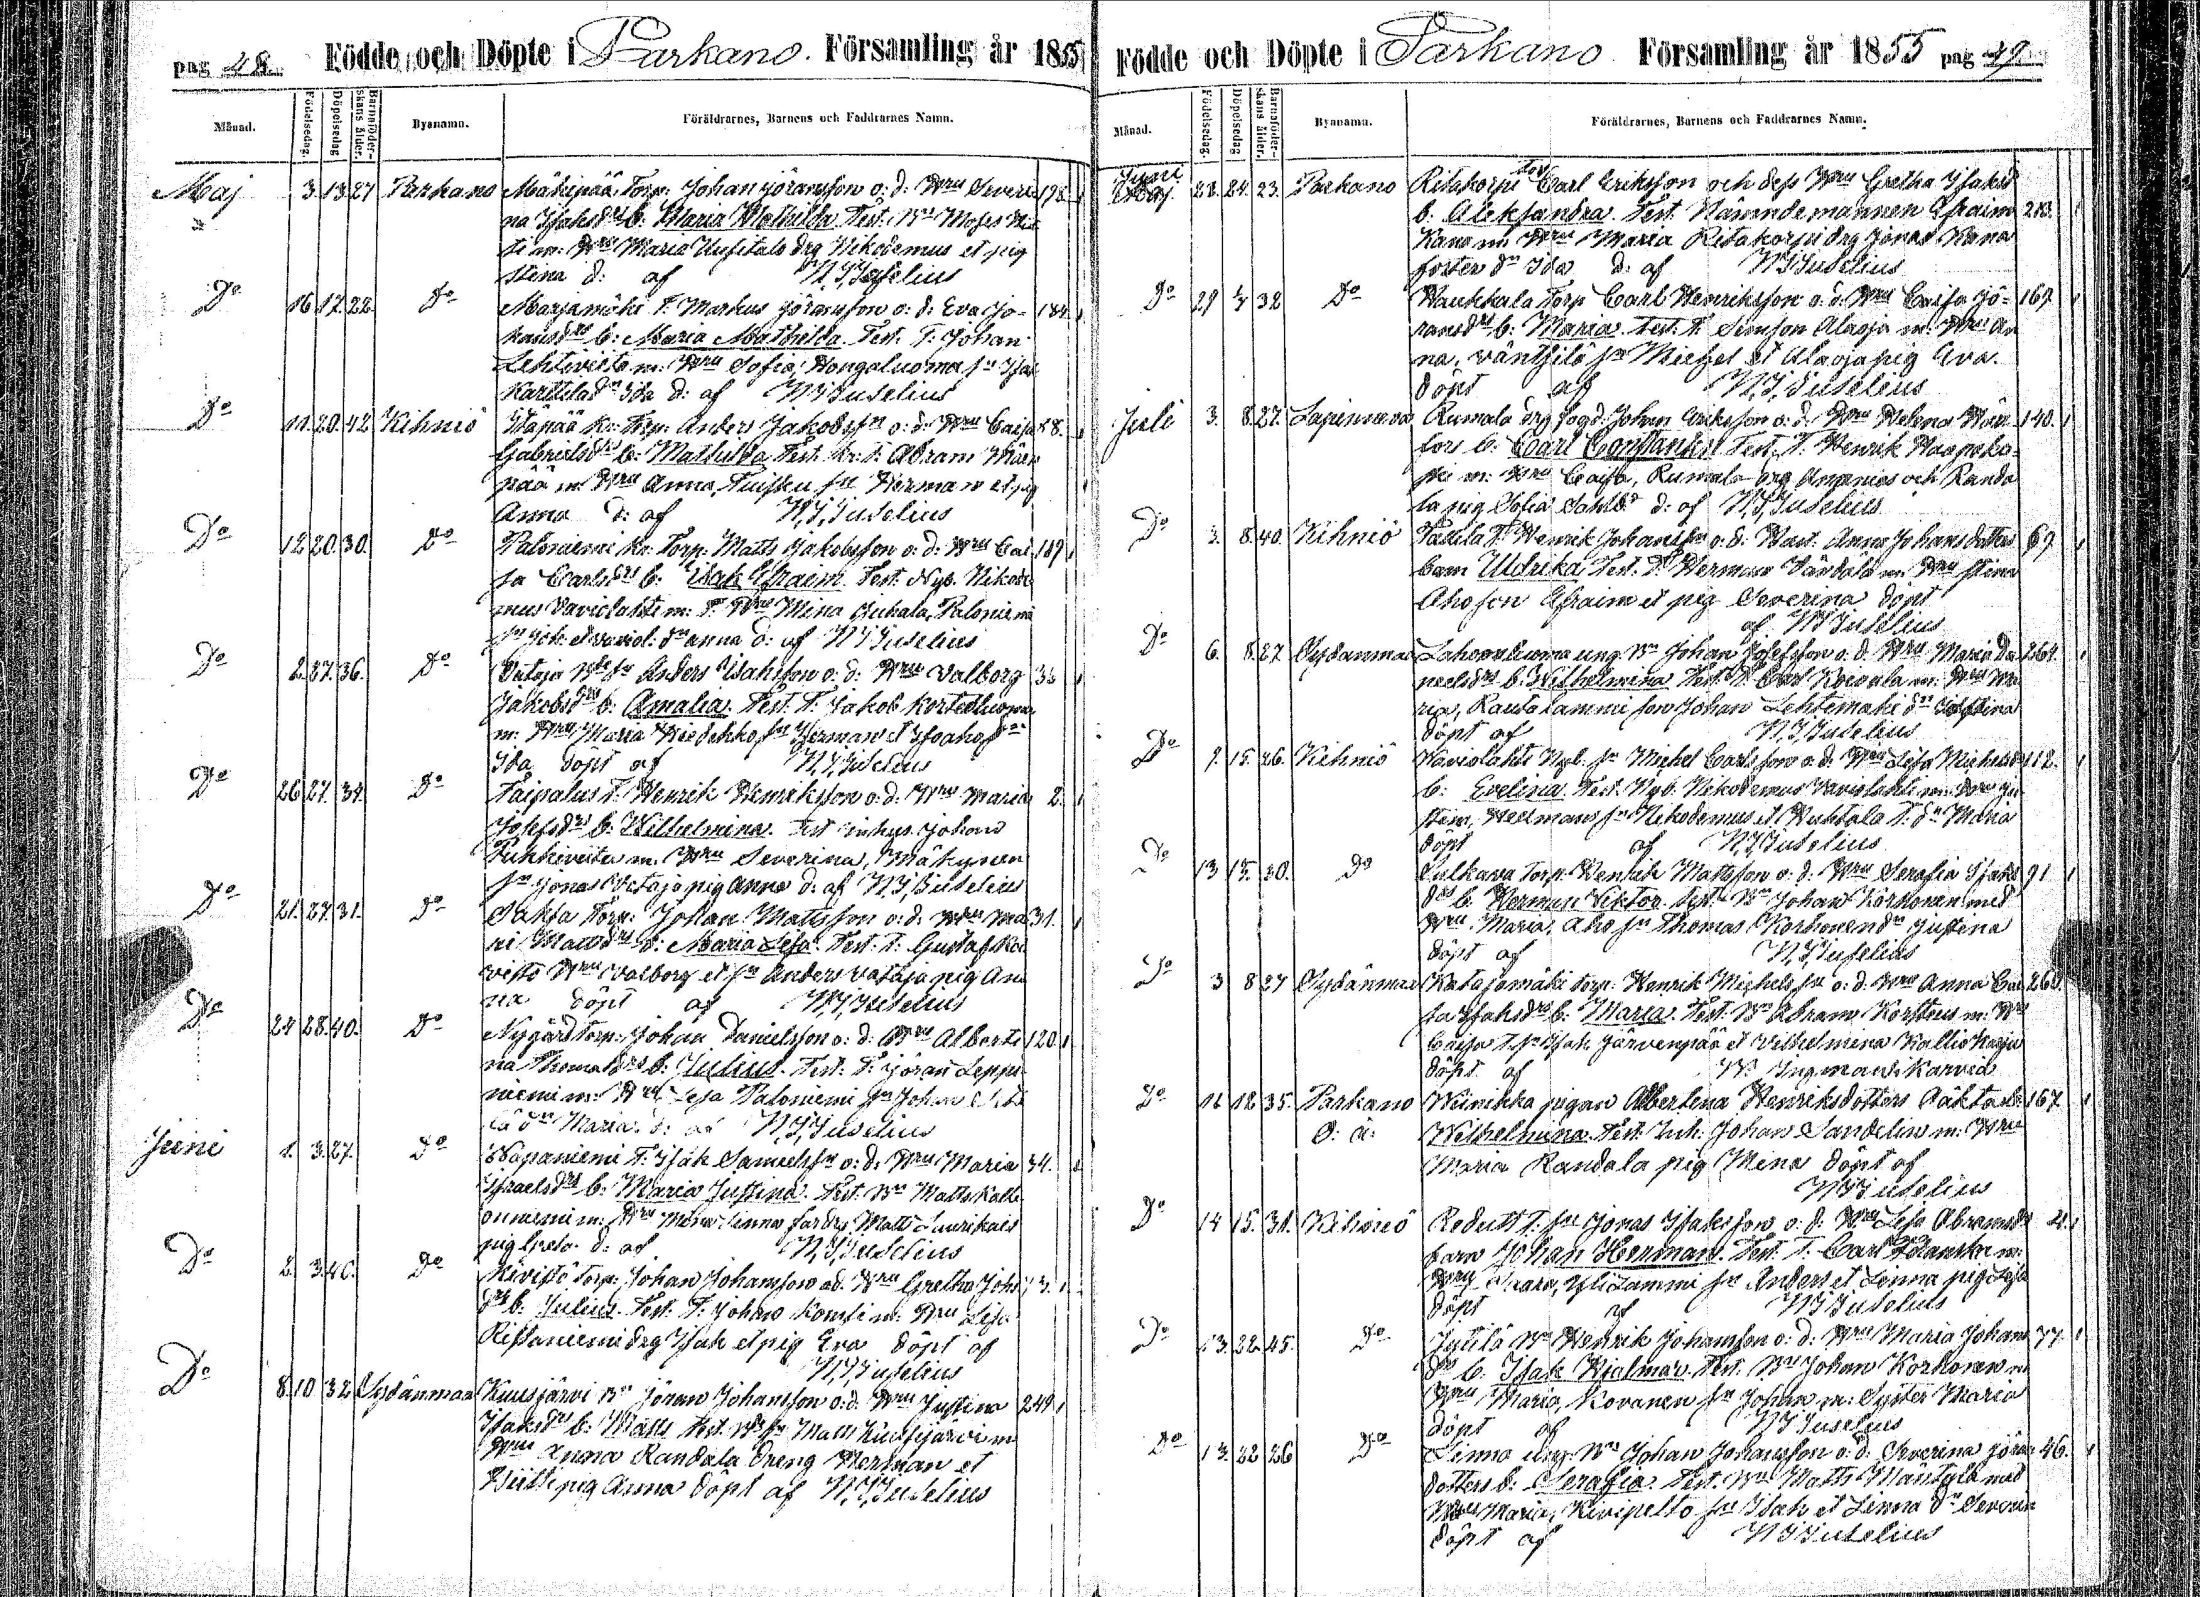 pag 48. Födde och Döpte i Parkano. Församling år 1855
Månad. Födelsedag. Döpelsedag Barnaföder-skans ålder. Bysnamn. Föräldrarnes, Barnens och Faddrarnes Namn.
Maj 3. 13. 27 Parkano Mäkipää Torp. Johan Göransson o: d: Hru Severi 178.
na Isaksdrs b: Maria Mathilda. Test. Bn Moses
m: Hru Maria drg Nikodemus et pig
Stina d: af N J Juselius
Do 16 17. 22. Do Marjamäki T. Markus Göransson o: d: Eva Jo- 184.
hansdrs b: Maria Mathilda. Test. T: Johan
Lehtiviita m: Hru Sofia, Hongaluoma sn Isak
Karttila dr Ida d: af N J Juselius
Do 11. 20. 42 Kihniö Yläpää Kr. Torp. Anders Jakobssn o: d: Hru Caisa 28.
Gabrielsdrs b: Mathilda Test. Kr. T. Abram
pää m Hru Anna, Tuisku sn Herman et pig
Anna d: af N, J, Juselius
Do 12 20. 30. Do Paloniemi Kr. Torp. Matts Jakobsson o: d: Hru Cai 189
sa Carlsdrs b: Isak Efraim. Test. Nyb. Nikode
mus Daviolahti m: T. Hru Mina Juhala, Paloniemi
sn Joh. et Daviol: dr Anna d: af N J Juselius
Do 2. 27. 36. Do Vataja Bde sn Anders Isaksson o: d: Hru Valborg 33
Jakobsdrs b: Amalia. Test. T. Jakob Kortetluoma
m: Hru Maria sn Herman et dr
Ida döpt af N, J, Juselius
Do 26 27. 34. Do Taipalus T. Henrik Henriksson o: d: Hru Maria 2.
Josefsdrs b: Wilhelmina. Test inhys. Johan
m. Hru Severina, Mäkynen
sn Jonas Vataja pig Anna d: af N J Juselius
Do 21. 27. 31. Do Sakta Torp: Johan Mattsson o: d: Hru Ma 31.
ri Mattsdrs b: Maria Lisa. Test. T. Gustaf Koi
visto Hru Valborg et sn Anders Vataja pig An
na döpt af N J Juselius
Do 24 28. 40. Do Nygård torp: Johan Danielsson o: d: Hru Alberti 120
na Thomasdrs b: Julius. Test: T. Göran Leppi
niemi m: Hru Lisa Paloniemi sn Johan
dr Maria. d: af N, J, Juselius
Juni 1. 3. 27. Do Napaniemi T. Isak Samuelssn o: d: Hru Maria 34.
Israelsdrs b: Maria Justina. Test: Bn Matts Kalli
oniemi m: Hru Maria Linna Matts
pig Greta. d: af N, J, Juselius
Do 2. 3. 40. Do Kivistö torp: Johan Johansson o d: Hru Gretha Johs 73.
drs b: Julius. Test. T. Johan Komsi m: Hru Lisa
Ristaniemi drg Isak et pig Eva döpt af
N, J, Juselius
Do 8. 10 32 Sydänmaa Kuusjärvi Bn Göran Johansson o: d: Hru Justina 249.
Isaksdrs b: Matts Test. Bde sn Matts Kuusijärvi m
Hru Anna Randala Dreng Herman et
pig Anna döpt af N, J, Juselius
Födde och Döpte i Parkano Församling år 1855 pag 49.
Månad. Födelsedag. Döpelsedag Barnaföder-skans ålder. Bysnamn. Föräldrarnes, Barnens och Faddrarnes Namn.
Juni
Maj. 22. 24. 23. Parkano Ritakorpi Tor Carl Eriksson och dess Hru Gretha Isaksd
b. Aleksandra. Test. Nämndemannen Efraim 213.
Kana m: Hru Maria Ritakorpi drg Jonas Kana
foster dr Ida d: af N J Juselius
Do 29 1/7 32 Do Haukkala Torp Carl Henriksson o: d: Hru Caisa Jö- 169.
ransdrs b: Maria. Test. T. Simson Alaoja m: Hru An
na, Väntsilä sn Michel et Alaoja pig Eva.
döpt af N, J, Juselius
Juli 3. 8. 27. Lapinneva Rumala drg Johan Eriksson o: d: Hru Helena 140.
b: Carl Constantin Test. T. Henrik Haapaka
m: Hru Caisa, Rumala drg Ananias och Randa
la pig Sofia d: af N, J, Juselius
Do 3. 8. 40. Kihniö T. Henrik Johansson o: d: Hust. Anna Johansdotters 69.
barn Uldrika Test. T. Herman m: Hru Stina
Aho son Efraim et pig Severina döpt
af N J Juselius
Do 6. 8. 27 Sydänmaa ung. Bn Johan Josefsson o: d: Hru Maria Da 264.
nielsdrs b: Wilhelmina Test. T. Carl Koivula m: Hru Ma
ria, Rautalammi son Johan Lehtemäki dr Justina
döpt af N, J, Juselius
Do 9. 15. 26. Kihniö Daviolahti Nyb. sn Michel Carlsson o: d: Hru Lisa Michelsdr 112.
b: Evelina. Test. Nyb. Nikodemus Daviolahti m: Hru Ju
stina, sn Nikodemus et Huhtala T. dr Maria
döpt af N J Juselius
Do 13 15. 20. Do Sulkava Torp: Henrik Mattsson o: d: Hru Serafia Isaks 91
drs b: Herman Viktor. Test. Bn Johan Korhonen med
Hru Maria, Aho sn Thomas Korhonen dr Justina
döpt af N, J, Juselius
Do 3 8 27 Sydänmaa Katajamäki torp: Henrik Michelssn o: d: Hru Anna Cai 260.
sa Isaksdrs b: Maria. Test. Bn Abram Kortteus m: Hru
Caisa T. sn Isak Järvenpää et Vilhelmina Kalliokarja
döpt af Ingman Karvia
Do 16 18 35. Parkano Weinikka pigan Albertina Henriksdotters oäkta b: 167.
O: ä: Wilhelmina. Test: Inh: Johan Sandelin m: Hru
Maria Randala pig Mina döpt af
N J Juselius
Do 14 15. 31. Kihniö Redutt T. sn Jonas Isaksson o: d: Hru Lisa Abramsdr 4.
barn Johan Herman. Test. T. Carl m:
Hru Maria, Ylilammi sn Anders et Linna pig Lisa
döpt af N J Juselius
Do 13. 22. 45. Do Jytilä Bn Henrik Johansson o: d: Hru Maria Johans 77.
drs b: Isak Hjalmar. Test. Bn Johan Korhonen m
Hru Maria, Kovanen sn Johan m: Syster Maria
döpt af N J Juselius
Do 13. 22 26 Do Linna ung. Bn Johan Johansson o: d: Severina Göran 46.
dotters b: Serafia. Test. Bn Matts Mäntylä med
Hru Maria, Kivipelto sn Isak et Linna dr Severin
döpt af N J Juselius